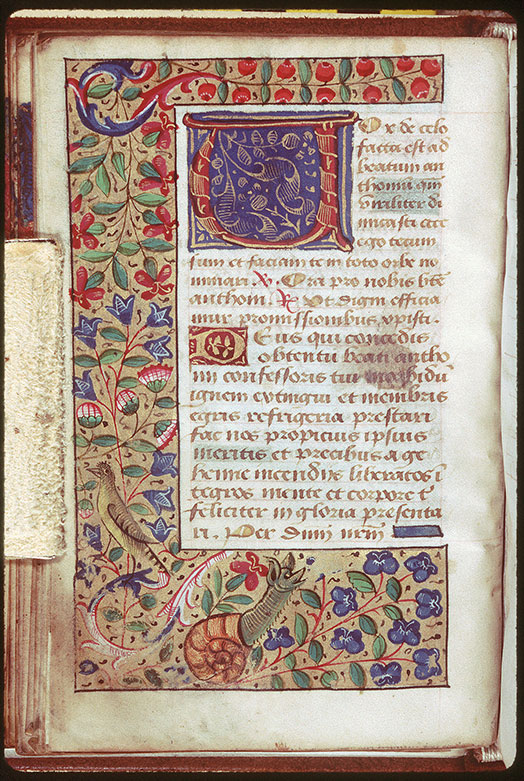 Vox de celo
facta est ad
beatum an
thoniũ qui
viriliter di
micasti ecce
ego tecum
sum et faciam te in toto orbe no
minari. V. Ora pro nobis bte
anthoni. R. Ut digni efficia
mur promissionibus xpisti.
Deus qui concedis
obtentu beati antho
nii confessoris tui morbidũ
ignem extingui et membris
egris refrigeria prestari
fac nos propicius ipsius
meritis et precibus a ge
henne incendiis liberatos ĩ
tegros mente et corpore t̃
feliciter in gloria presenta
ri. Per dñm nr̃m